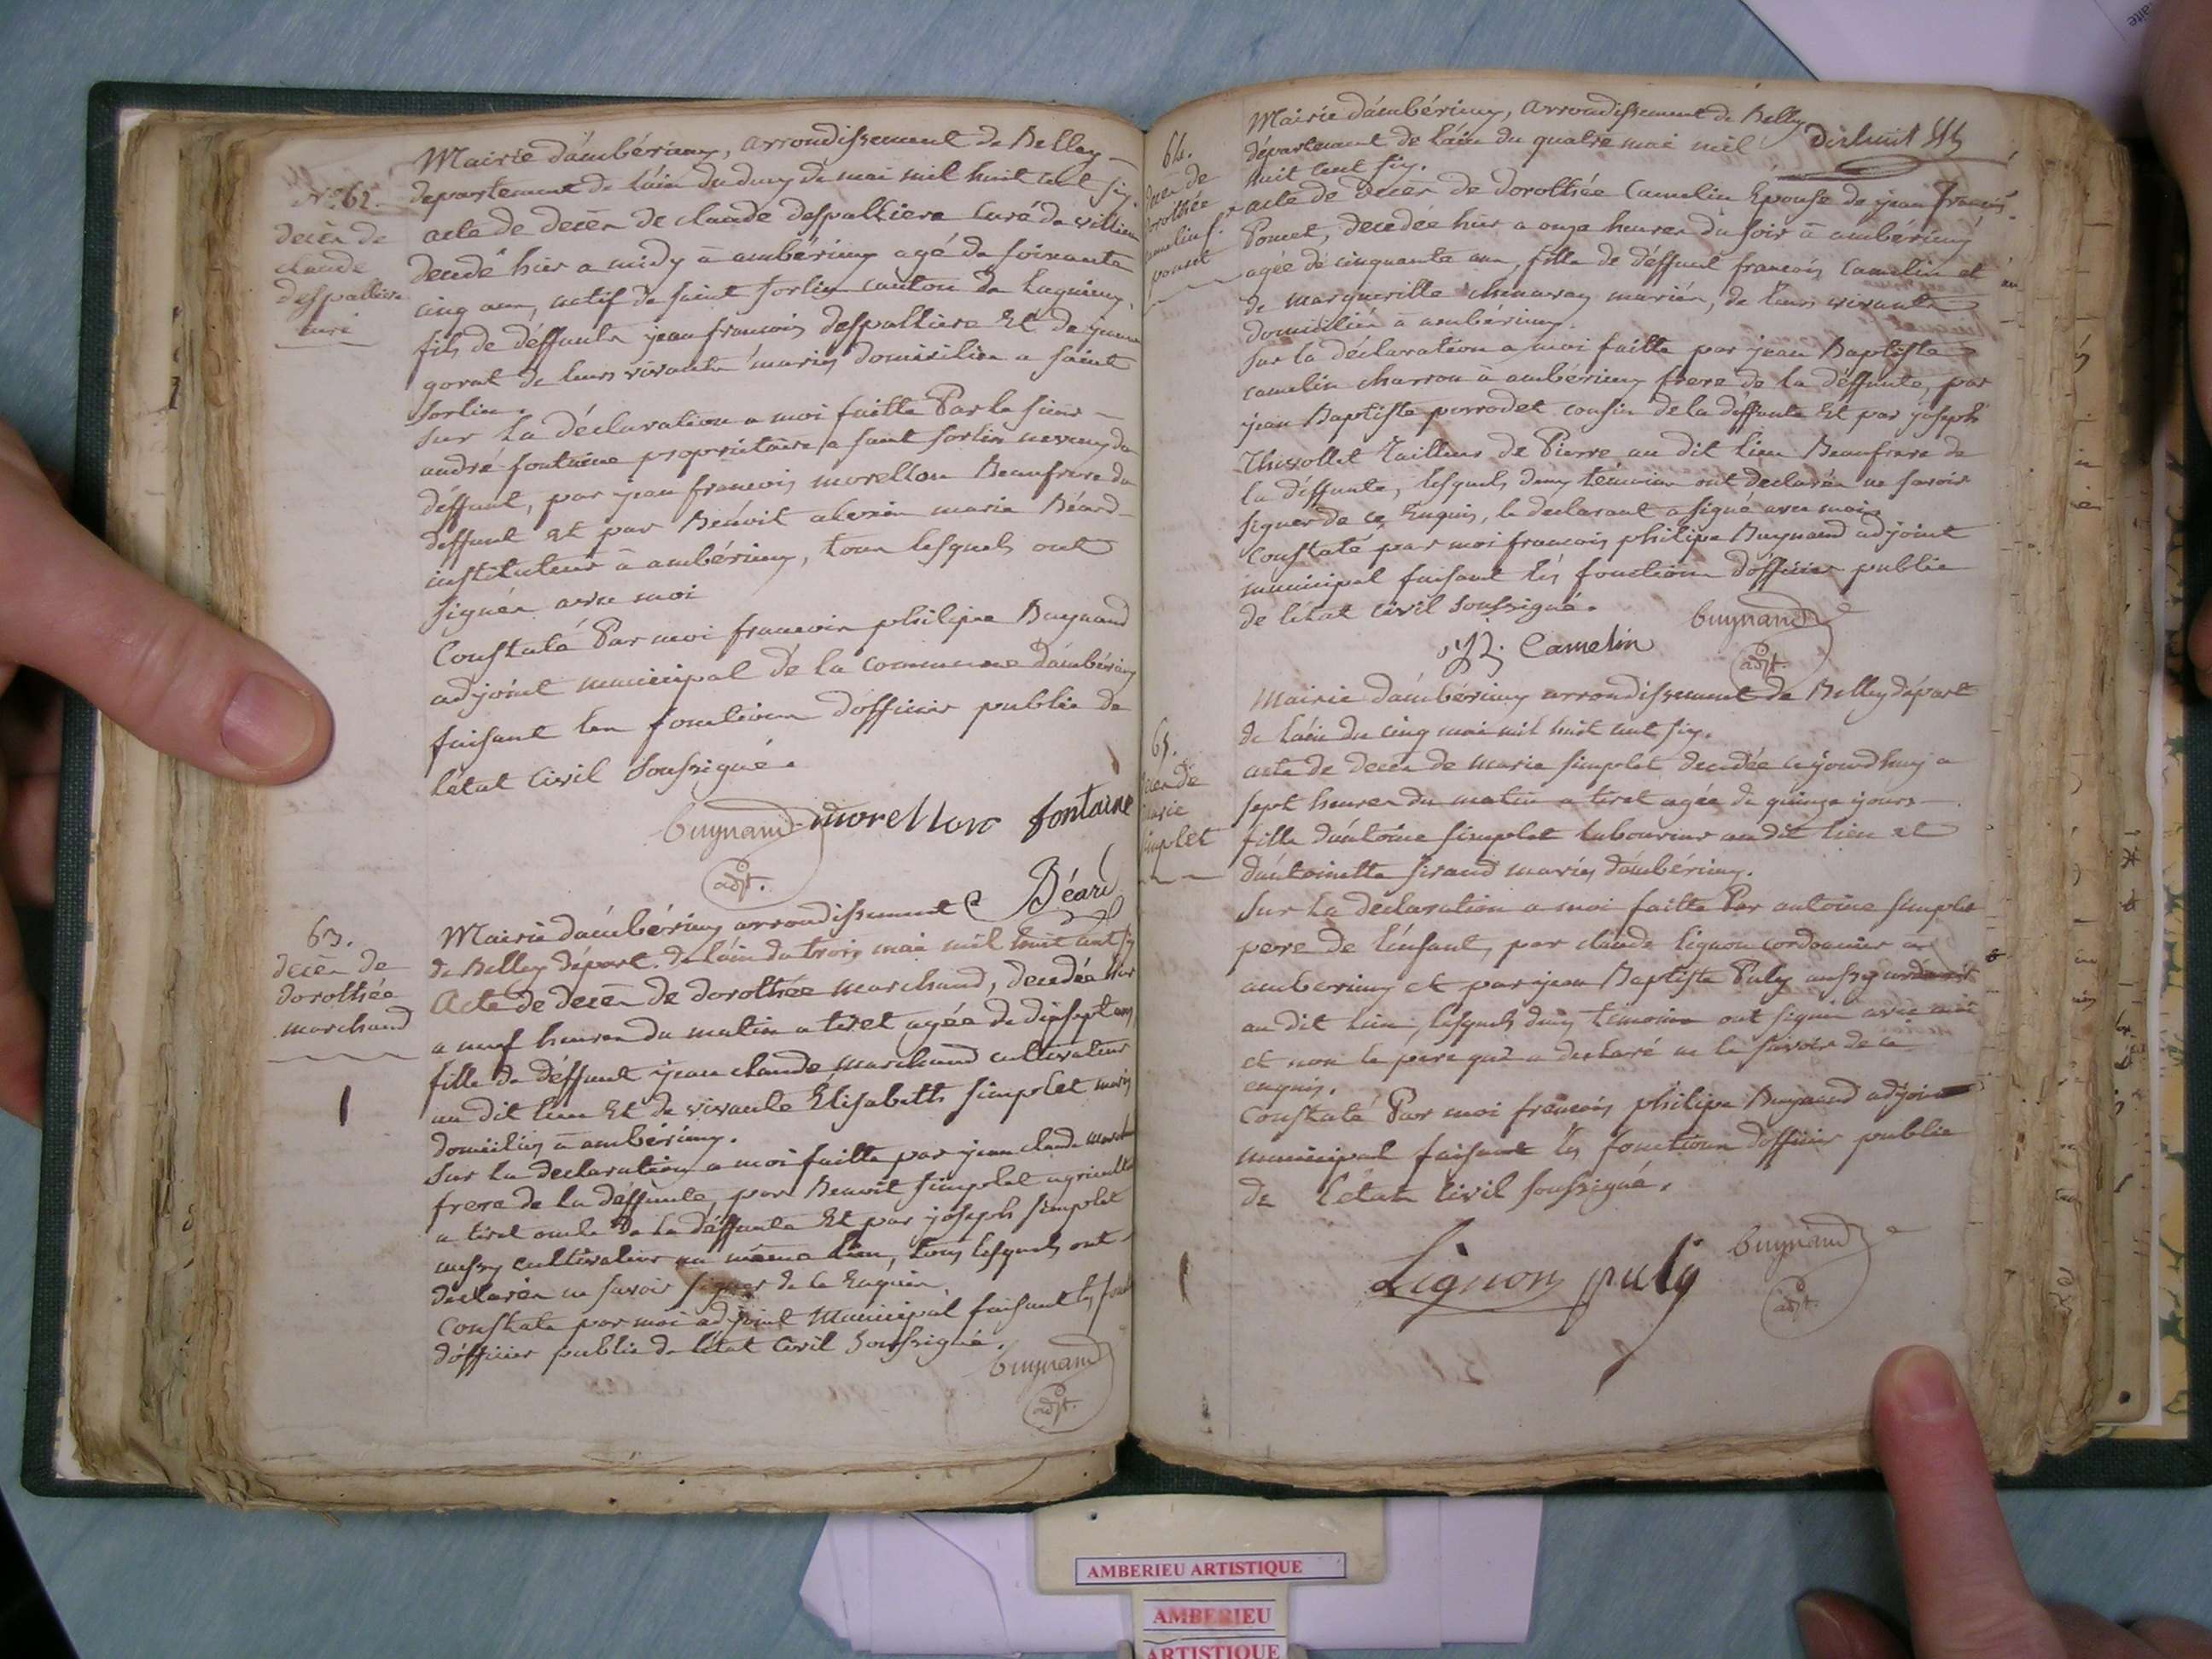 N.° 62.
décès de
claude
despalliere
curé
Mairie d'ambérieux, arrondissement de Belley
département de l'ain du deux de mai mil huit cent six
acte de décès de claude despalliere curé de villieu
décédé hier a midy à ambérieux agé de soixante
cinq ans, natif de saint sorlin canton de Lagnieux,
fils de déffunts jean françois despalliere Et de jeanne
gorat de leurs vivants mariés domiciliés a saint
sorlin.
Sur la déclaration a moi faitte Par le sieur
andré fontaine propriétaire a saint sorlin neveux du
déffunt, par jean françois morellon Beaufrere du
deffunt Et par Benoit alexis marie Béard
instituteur à ambérieux, tous lesquels ont
signés avec moi
Constaté Par moi françois philipe Buynand
adjoint municipal de la commune d'ambérieux
faisant les fonctions d'officier public de
l'état Civil Soussigné.
buynand morellon fontaine
adjt. Béard
63.
décès de
dorothée
marchand
Mairie d'ambérieux arrondissement
de Belley départ. de l'ain du trois mai mil huit cent six
Acte de decès de dorothée marchand, decedée hier
a neuf heures du matin a tiret agée de dixsept ans
fille de déffunt jean claude marchand cultivateur
au dit lieu Et de vivante Élisabeth simplet mariés
domiciliés à ambérieux.
Sur la declaration a moi faitte par jean claude
frere de la déffunte, par Benoit simplet
a tiret oncle de la déffunte Et par joseph simplet
aussy cultivateur au même lieu, tous lesquels ont
declarés ne savoir signer de ce Enquis
Constaté par moi adjoint Municipal faisant les
d'officier public de l'état Civil Soussigné.
buynand
adjt.
64.
décès de
dorothée
camelin f.e
poncet
Mairie d'ambérieux, arrondissement de Belley
département de l'ain du quatre mai mil dixhuit
huit cent six.
acte de décès de dorothée Camelin Épouse de jean françois
Poncet, decedée hier a onze heures du soir à ambérieux
agée de cinquante ans, fille de déffunt françois Camelin et
de margueritte chenavay mariés, de leurs vivants
domiciliés à ambérieux.
Sur la déclaration a moi faitte par jean Baptiste
camelin charron à ambérieux frere de la déffunte, par
jean Baptiste porrodet cousin de la déffunte Et par joseph
Thivollet Tailleur de Pierre au dit lieu Beaufrere de
la déffunte, lesquels deux témoins ont declarés ne savoir
signer de ce Enquis, le declarant a signé avec moi.
Constaté par moi françois philipe Buynand adjoint
municipal faisant les fonctions d'officier public
de l'état civil soussigné.
buynand
Camelin
adjt.
65.
décès de
marie
simplet
Mairie d'ambérieux arrondissement de Belley départ
de l'ain du cinq mai mil huit cent six.
acte de decès de marie simplet decedée ajourdhuy a
sept heures du matin a tiret agée de quinze jours
fille d'antoine simplet laboureur au dit lieu et
d'antoinette sirand mariés d'ambérieux.
Sur la déclaration a moi faitte Par antoine simplet
pere de l'enfant, par claude Lignon cordonnier a
amberieux et par jean Baptiste Puly aussy
au dit lieu, lesquels deux témoins ont signés avec moi
et non le pere qui a declaré ne le savoir de ce
enquis.
Constaté Par moi françois philipe Buynand adjoint
municipal faisant les fonctions d'officier public
de l'état Civil soussigné.
Lignon puly buynand
adjt.
AMBERIEU ARTISTIQUE
AMBERIEU
ARTISTIQUE